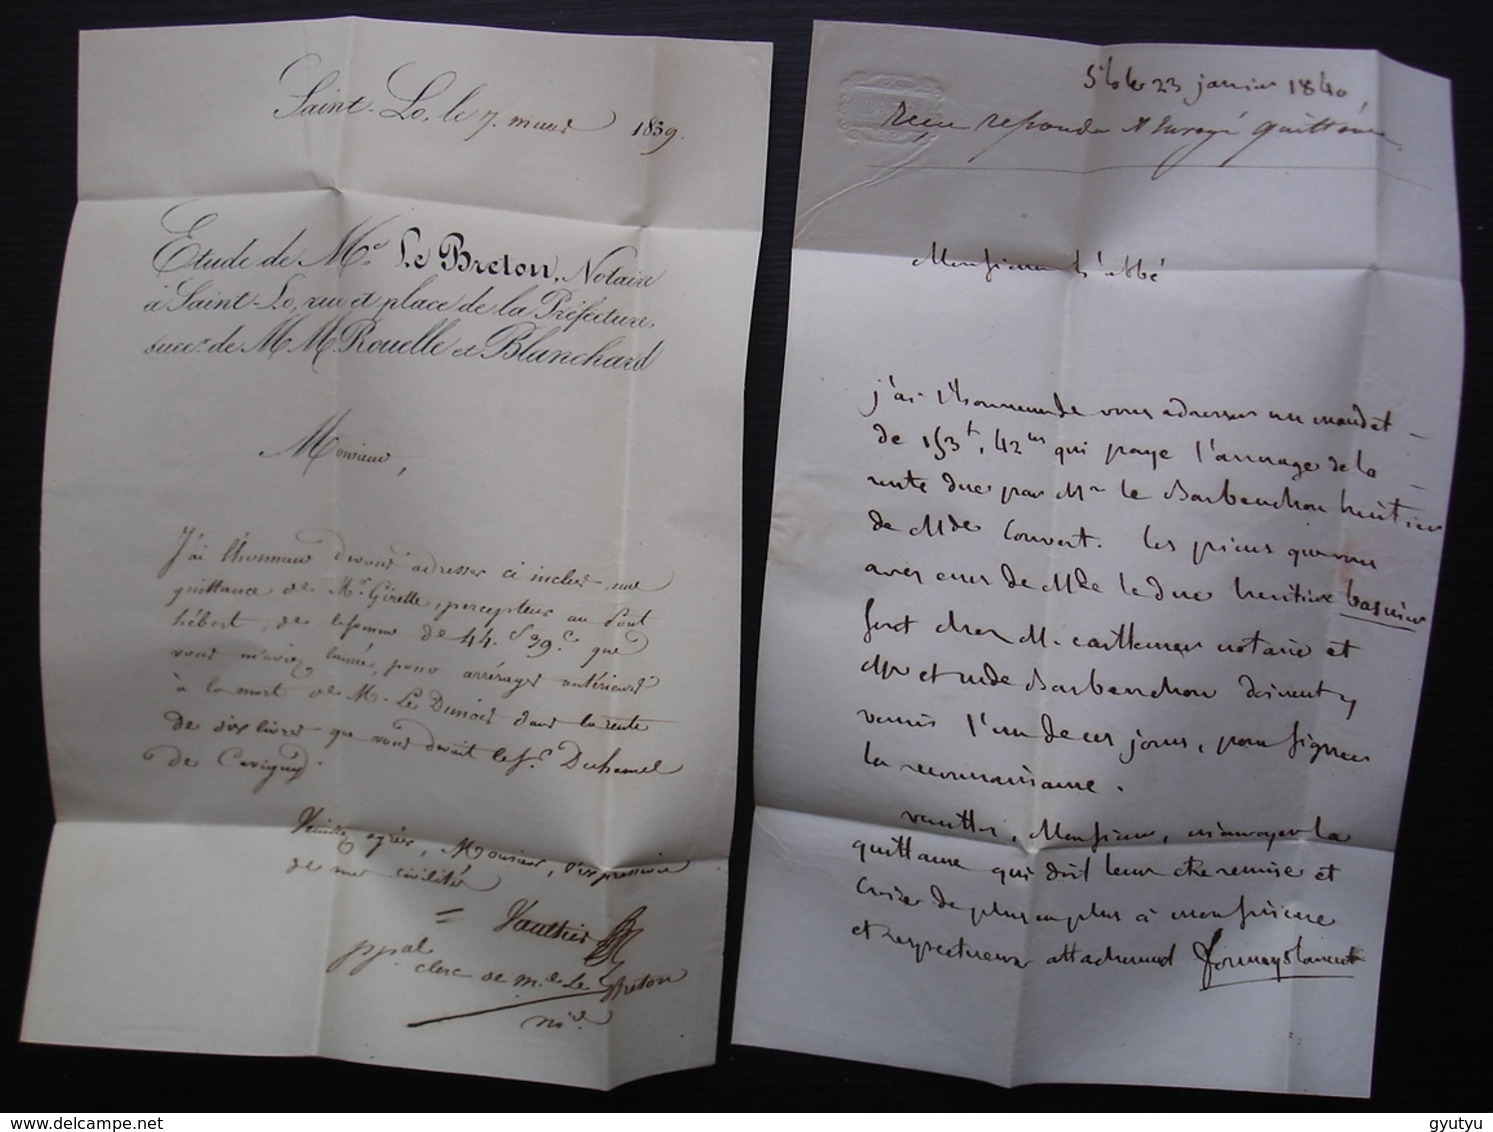 Saint-Lo, le 7. mars 1839.
Etude de Me. Le Breton, Notaire
à Saint-Lo, rue et place de la Préfecture,
succr. de M.M. Rouelle et Blanchard
Monsieur,
J'ai l'honneur de vous adresser ci inclus une
quittance de Mr. Girette, percepteur au Pont
hébert, de la somme de 44.f 39.c que
vous m'aviez laissé, pour arrérages antérieurs
à la mort de M. Le Dunois dans la rente
de dix livres que vous devait le Sr. Duhamel
de Cavigny.
Veuillez agréer, Monsieur, l'expression
de mes civilités
= Vauthier
ppal
clerc de me. Le Breton
nre.
St Lo le 23 janvier 1840
Reçu repondu et Envoyé quittance
Monsieur L'Abbé
j'ai l'honneur de vous adresser un mandat
de 153f, 42cs qui paye l'arrerage de la
rente due par Mr le Barbenchon héritier
de Mde Couvert. Les pièces que vous
avez eues de Mde le duc heritiere basnier
sont chez M. caillemer notaire et
Mr et mde Barbenchon doivent y
venir l'un de ces jours, pour signer
la reconnaissance.
veuillez, Monsieur, m'envoyer la
quittance qui doit leur etre remise et
Croire de plus en plus à mon sincere
et respectueux attachement
delcampe.net
gyutyu